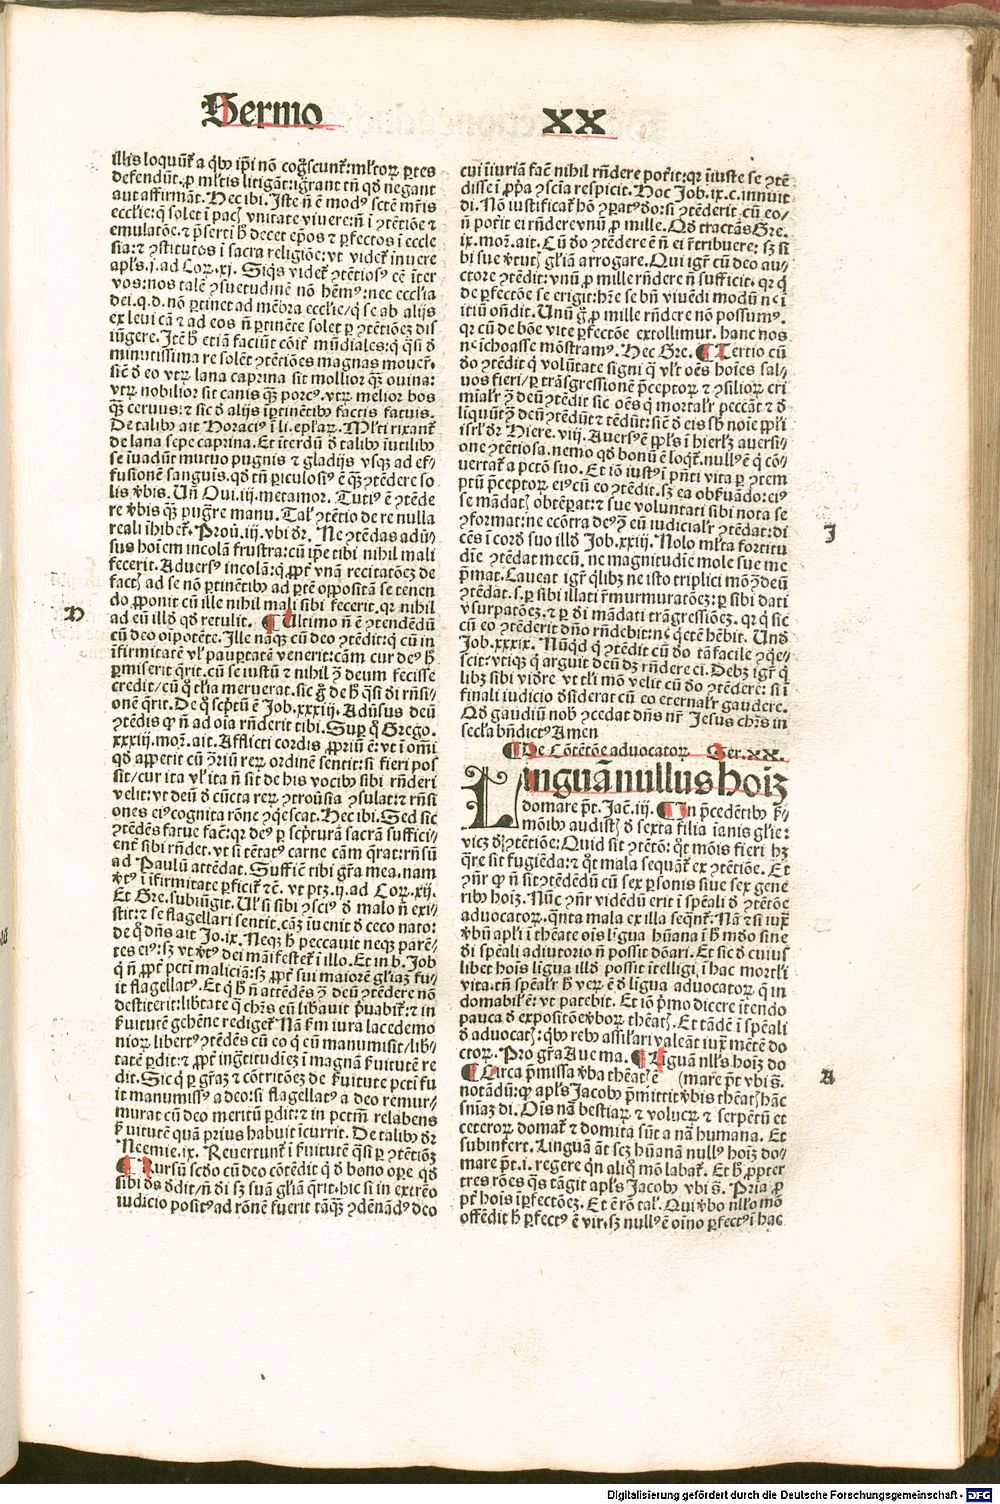 Sermo XX
illis loquunt᷑ a qͥbꝰ ip̄i nō cogͦscunt᷑: ml̓torꝝ ꝑtes
defendūt. ꝓ ml̓tis litigāt: igrant tn̄ qd̓ negant
aut affirmāt. Hec ibi. Iste n̄ ē modꝰ sctē mr̄is
ecclīe: q̄ solet ī pacꝫ vnitate viuere: n̄ ī ꝯtētiōe ⁊
emulatōe. ⁊ p̄serti h̓ decet ep̄os ⁊ ꝑfectos ī eccle
sia: ⁊ ꝯstitutos ī sacra religiōe: vt videt᷑ inuere
apl̓s. j. ad Coꝝ. xj. Siqͥs videt᷑ ꝯtētiosꝰ eē īter
vos: nos talē ꝯsuetudinē nō hēmꝰ: nec ecclīa
dei. q. d. nō ꝑtinet ad mēbra ecclīe / qͥ se ab alijs
ex leui cā ⁊ ad eos n̄ ꝑtinēte solet ꝑ ꝯtētiōeꝫ dis
iūgere. Itē h̓ etiā faciūt cōit᷑ mūdiales: qͥ q̄si d̓
minutissima re solēt ꝯtētiōes magnas mouer᷑.
sic̄ d̓ eo vtꝝ lana caprina sit mollior qꝫ̄ ouina:
vtꝝ nobilior sit canis qꝫ̄ porcꝰ. vtꝝ melior bos
qꝫ̄ ceruus: ⁊ sic d̓ alijs iꝑtinētibꝰ factis fatuis.
De talibꝰ ait Horaciꝰ ī li. epl̓aꝝ. Ml̓ti rixant᷑
de lana sepe caprina. Et īterdū d̓ talibꝰ īutilibꝰ
se īuadūt mutuo pugnis ⁊ gladijs vsqꝫ ad ef⸗
fusionē sanguīs. qd̓ tn̄ ꝑiculosiꝰ ē qꝫ̄ ꝯtēdere so
lis v̓bis. Un̄ Oui. iij. metamor. Tutiꝰ ē ꝯtēde
re v̓bis qꝫ̄ pugͣre manu. Tal᷑ ꝯtētio de re nulla
reali īhibet᷑. Prou̓. iij. vbi dr̄. Ne ꝯtēdas adū⸗
sus hoīem incolā frustra: cū ip̄e tibi nihil mali
fecerit. Aduersꝰ incolā: q. ꝓpt᷑ vnā recitatōeꝫ de
factꝫ ad se nō ꝑtinētibꝰ ad ꝑtē oppositā se tenen
do ꝓponit cū ille nihil mali sibi fecerit. qꝛ nihil
ad eū illd̓ qd̓ retulit. ¶ Ultimo n̄ ē ꝯtendēdū
cū deo oīpotēte. Ille nāqꝫ cū deo ꝯtēdit: q̄ cū in
īfirmitatē vl̓ pauꝑtatē venerit: cām cur deꝰ h̓
ꝑmiserit q̄rit. cū se iustū ⁊ nihil ꝯ̄ deum fecisse
credit / cū qͦ tl̓ia meruerat. sic g̃ de h̓ q̄si d̓i rn̄si⸗
onē q̄rit. De qͦ sc̄ptū ē Job. xxxiij. Adūsus deū
ꝯtēdis qꝓ n̄ ad oīa rn̄derit tibi. Suꝑ qͦ Grego.
xxxiij. moꝝ. ait. Afflicti cordis ꝓpriū ē: vt ī om̄i
qd̓ appetit cū ꝯ̄riū reꝝ ordinē sentit: si fieri pos
sit / cur ita vl̓ ita n̄ sit de his vocibꝰ sibi rn̄deri
velit: vt deū d̓ cūcta reꝝ ꝯtrou̓sia ꝯsulat: ⁊ rn̄si
ones eiꝰ cognita rōne ꝯq̓escat. Hec ibi. Sed sic
ꝯtēdēs fatue facīt: qꝛ deꝰ ꝑ sc̄pturā sacrā suffici⸗
ent᷑ sibi rn̄det. vt si tētatꝰ carne cām q̄rat: rn̄sū
ad Paulū attēdat. Sufficīt tibi gr̄a mea. nam
v̓tꝰ ī īfirmitate ꝑficit᷑ ⁊c̄. vt ptꝫ. ij. ad Coꝝ. xij.
Et Gre. subiūgit. Ul̓ si sibi ꝯsciꝰ d̓ malo n̄ exi⸗
stit: ⁊ se flagellari sentit. cāꝫ īuenit d̓ ceco nato:
de qͦ dn̄s ait Jo. ix. Neqꝫ h̓ peccauit neqꝫ parē⸗
tes eiꝰ: sꝫ vt v̓tꝰ dei māifestet᷑ ī illo. Et in b. Job
qͥ n̄ ꝓpt᷑ pctī maliciā: sꝫ ꝓpt᷑ sui maiorē gl̓iaꝫ fu⸗
it flagellatꝰ. Et qͥ h̓ n̄ attēdēs ꝯ̄ deū ꝯtēdere nō
destiterit: libtate qͣ chr̄s eū lib̓auit p̄uabit᷑: ⁊ in
s̓uitutē gehēne rediget᷑. Nā s̓m iura lacedemo
nioꝝ libertꝰ ꝯtēdēs cū eo qͥ eū manumisit / lib⸗
tatē ꝑdit: ⁊ ꝓpt᷑ ingͣtitudiēꝫ ī magnā s̓uitutē re
dit. Sic qͥ ꝑ gr̄aꝫ ⁊ cōtritōeꝫ de s̓uitute pcti fu
it manumissꝰ a deo: si flagellatꝰ a deo remur⸗
murat cū deo meritū ꝑdit: ⁊ in pctm̄ relabens
s̓uitutē quā prius habuit īcurrit. De talibꝰ dr̄
Neemie. ix. Reuertunt᷑ ī s̓uitutē q̄si ꝑ ꝯtētiōꝫ
¶ Rursū scd̓o cū deo cōtēdit qͥ d̓ bono oꝑe qd̓
sibi d̓s d̓dit / n̄ d̓i sꝫ suā gl̓iā q̄rit. hic si in extrēo
iudicio positꝰ ad rōnē fuerit tāqꝫ̄ ꝯdēnādꝰ deo
D
cui īiuriā fac̄ nihil rn̄dere poīt: qꝛ iiuste se ꝯtē
disse ī ꝓp̄a ꝯscīa respicit. Hoc Job. ix. c. innuit
di. Nō iustificat᷑ hō ꝯꝑatꝰ d̓o: si ꝯtēderit cū eo⸗
n̄ poīt ei rn̄dere vnū ꝓ mille. Qd̓ tractās Gre.
ix. moꝝ. ait. Cū d̓o ꝯtēdere ē n̄ ei īt̓ribuere: sꝫ si
bi sue v̓tutꝫ gl̓iā arrogare. Qui igit᷑ cū deo au⸗
ctore ꝯtēdit: vnū ꝓ mille rn̄dere n̄ sufficit. qꝛ qͥ
de ꝑfectōe se erigit: hr̄e se bn̄ viuēdi modū nꝫ ī
itiū on̄dit. Unū g̃ ꝓ mille rn̄dere nō possumꝰ.
qꝛ cū de bōe vite ꝑfectōe extollimur. hanc nos
nꝫ īchoasse mōstramꝰ. Hec Gre. ¶ Tertio cū
d̓o ꝯtēdit qͥ volūtate signi q̄ vl̓t oēs hoīes sal⸗
uos fieri / ꝑ trāsgressionē p̄ceptoꝝ ⁊ ꝯsilioꝝ cri
mial᷑r ꝯ̄ deū ꝯtēdit sic oēs qͥ mortalr̄ peccāt ⁊ d̓
liquūt ꝯ̄ deū ꝯtēdūt ⁊ tēdūt: sic̄ d̓ eis sb̓ noīe pp̄li
isrl̓ dr̄ Hiere. viij. Auersꝰ ē ppl̓s ī hierl̓ꝫ auersi⸗
one ꝯtētiosa. nemo qd̓ bonū ē loqt᷑. nullꝰ ē qͥ cō⸗
vertat᷑ a pctō suo. Et iō iustꝰ ī pn̄ti vita ꝑ ꝯtem
ptū p̄ceptoꝝ eiꝰ cū eo ꝯtēdit. sꝫ ea obs̓uādo: eiꝰ
se mādatꝫ obtēꝑat: ⁊ sue voluntati sibi nota se
ꝯformat: ne ecōtra deꝰ ꝯ̄ eū iudicialr̄ ꝯtēdat: di
cēs ī cord̓ suo illd̓ Job. xxiij. Nolo ml̓ta fortitu
dīe ꝯtēdat mecū. ne magnitudīe mole sue me
p̄mat. Caueat igr̄ q̄libꝫ ne isto triplici mō ꝯ̄ deū
ꝯtēdat. s. ꝑ sibi illati r̄murmuratōeꝫ: ꝑ sibi dati
vsurpatōeꝫ. ⁊ ꝑ d̓i mādati trāgressiōeꝫ. qꝛ qͥ sic
cū eo ꝯtēderit dn̄o rn̄debit: nꝫ q̓etē hēbit. Unđ
Job. xxxix. Nūqd̓ qͥ ꝯtēdit cū d̓o tā facile ꝯq̓e⸗
scit: vtiqꝫ qͥ arguit deū dꝫ rn̄dere ei. Debꝫ igr̄ q̄
libꝫ sibi vid̓re vt tl̓i mō velit cū d̓o ꝯtēdere: si ī
finali iudicio d̓siderat cū eo eternal᷑r gaudere.
Qd̓ gaudiū nob̓ ꝯcedat dn̄s nr̄ Jesus chr̄s in
secl̓a bn̄dictꝰ Amen
J
¶ De Cōtētōe aduocatoꝝ. Ser. xx.
Linguā nullus hoīꝫ
domare p̄t. Jac̄. iij. ¶ In p̄cedētibꝰ s̓⸗
mōibꝰ audistꝫ d̓ sexta filia īanis gl̓ie:
vicꝫ d̓ ꝯtētiōe: Quid sit ꝯtētō: qͣt mōis fieri hꝫ
q̄re sit fugiēda: ⁊ qͣt mala sequāt᷑ ex ꝯtētiōe. Et
ꝯn̄r qꝓ n̄ sit ꝯtēdēdū cū sex ꝑsonis siue sex gene
ribꝰ hoīꝫ. Nūc ꝯn̄r vidēdū erit ī spēali d̓ ꝯtētōe
aduocatoꝝ. q̄nta mala ex illa seqn̄t᷑. Nā ⁊ si iux̄
v̓bū apl̓i ī thēate oīs līgua hūana ī h̓ mūdo sine
d̓i spēali adiutorio n̄ possit dōari. Et sic d̓ cuiuſ
libet hoīs līgua illd̓ possit ītelligi, ī hac mortl̓i
vita. tn̄ spēalr̄ h̓ veꝝ ē d̓ līgua aduocatoꝝ q̄ in
domabilꝰ ē: vt patebit. Et iō p̄mo dicere ītendo
pauca d̓ expositōe v̓boꝝ thēatꝫ. Et tādē ī spēali
d̓ aduocatꝫ: qͥbꝰ reb̓ assil̓ari valeāt iux̄ mētē do
ctoꝝ. Pro gr̄a Aue ma. ¶ Liguā nll̓s hoīꝫ do
¶ Circa p̄missa v̓ba thēatꝫ ē (mare p̄t vbi s̄.
notādū: qꝓ apl̓s Jacobꝰ p̄mittit v̓bis thēatꝫ hāc
sn̄iaꝫ di. Oīs nā bestiaꝝ ⁊ volucꝝ ⁊ serpētū et
ceteroꝝ domat᷑ ⁊ domita sūt a nā humana. Et
subinfert. Linguā āt seꝫ hūanā nullꝰ hoīꝫ do⸗
mare p̄t. i. regere qn̄ aliqͦ mō labat᷑. Et h̓ ꝓpter
tres rōes q̄s tāgit apl̓s Jacobꝰ vbi s̄. Pria ꝓ
pt᷑ hoīs īꝑfectōeꝫ. Et ē rō tal᷑. Qui v̓bo nllo mō
offēdit h̓ ꝑfectꝰ ē vir. sꝫ nullꝰ ē oīno ꝑfectꝰ ī hac
A
Digitalisierung gefördert durch die Deutsche Forschungsgemeinschaft - DFG